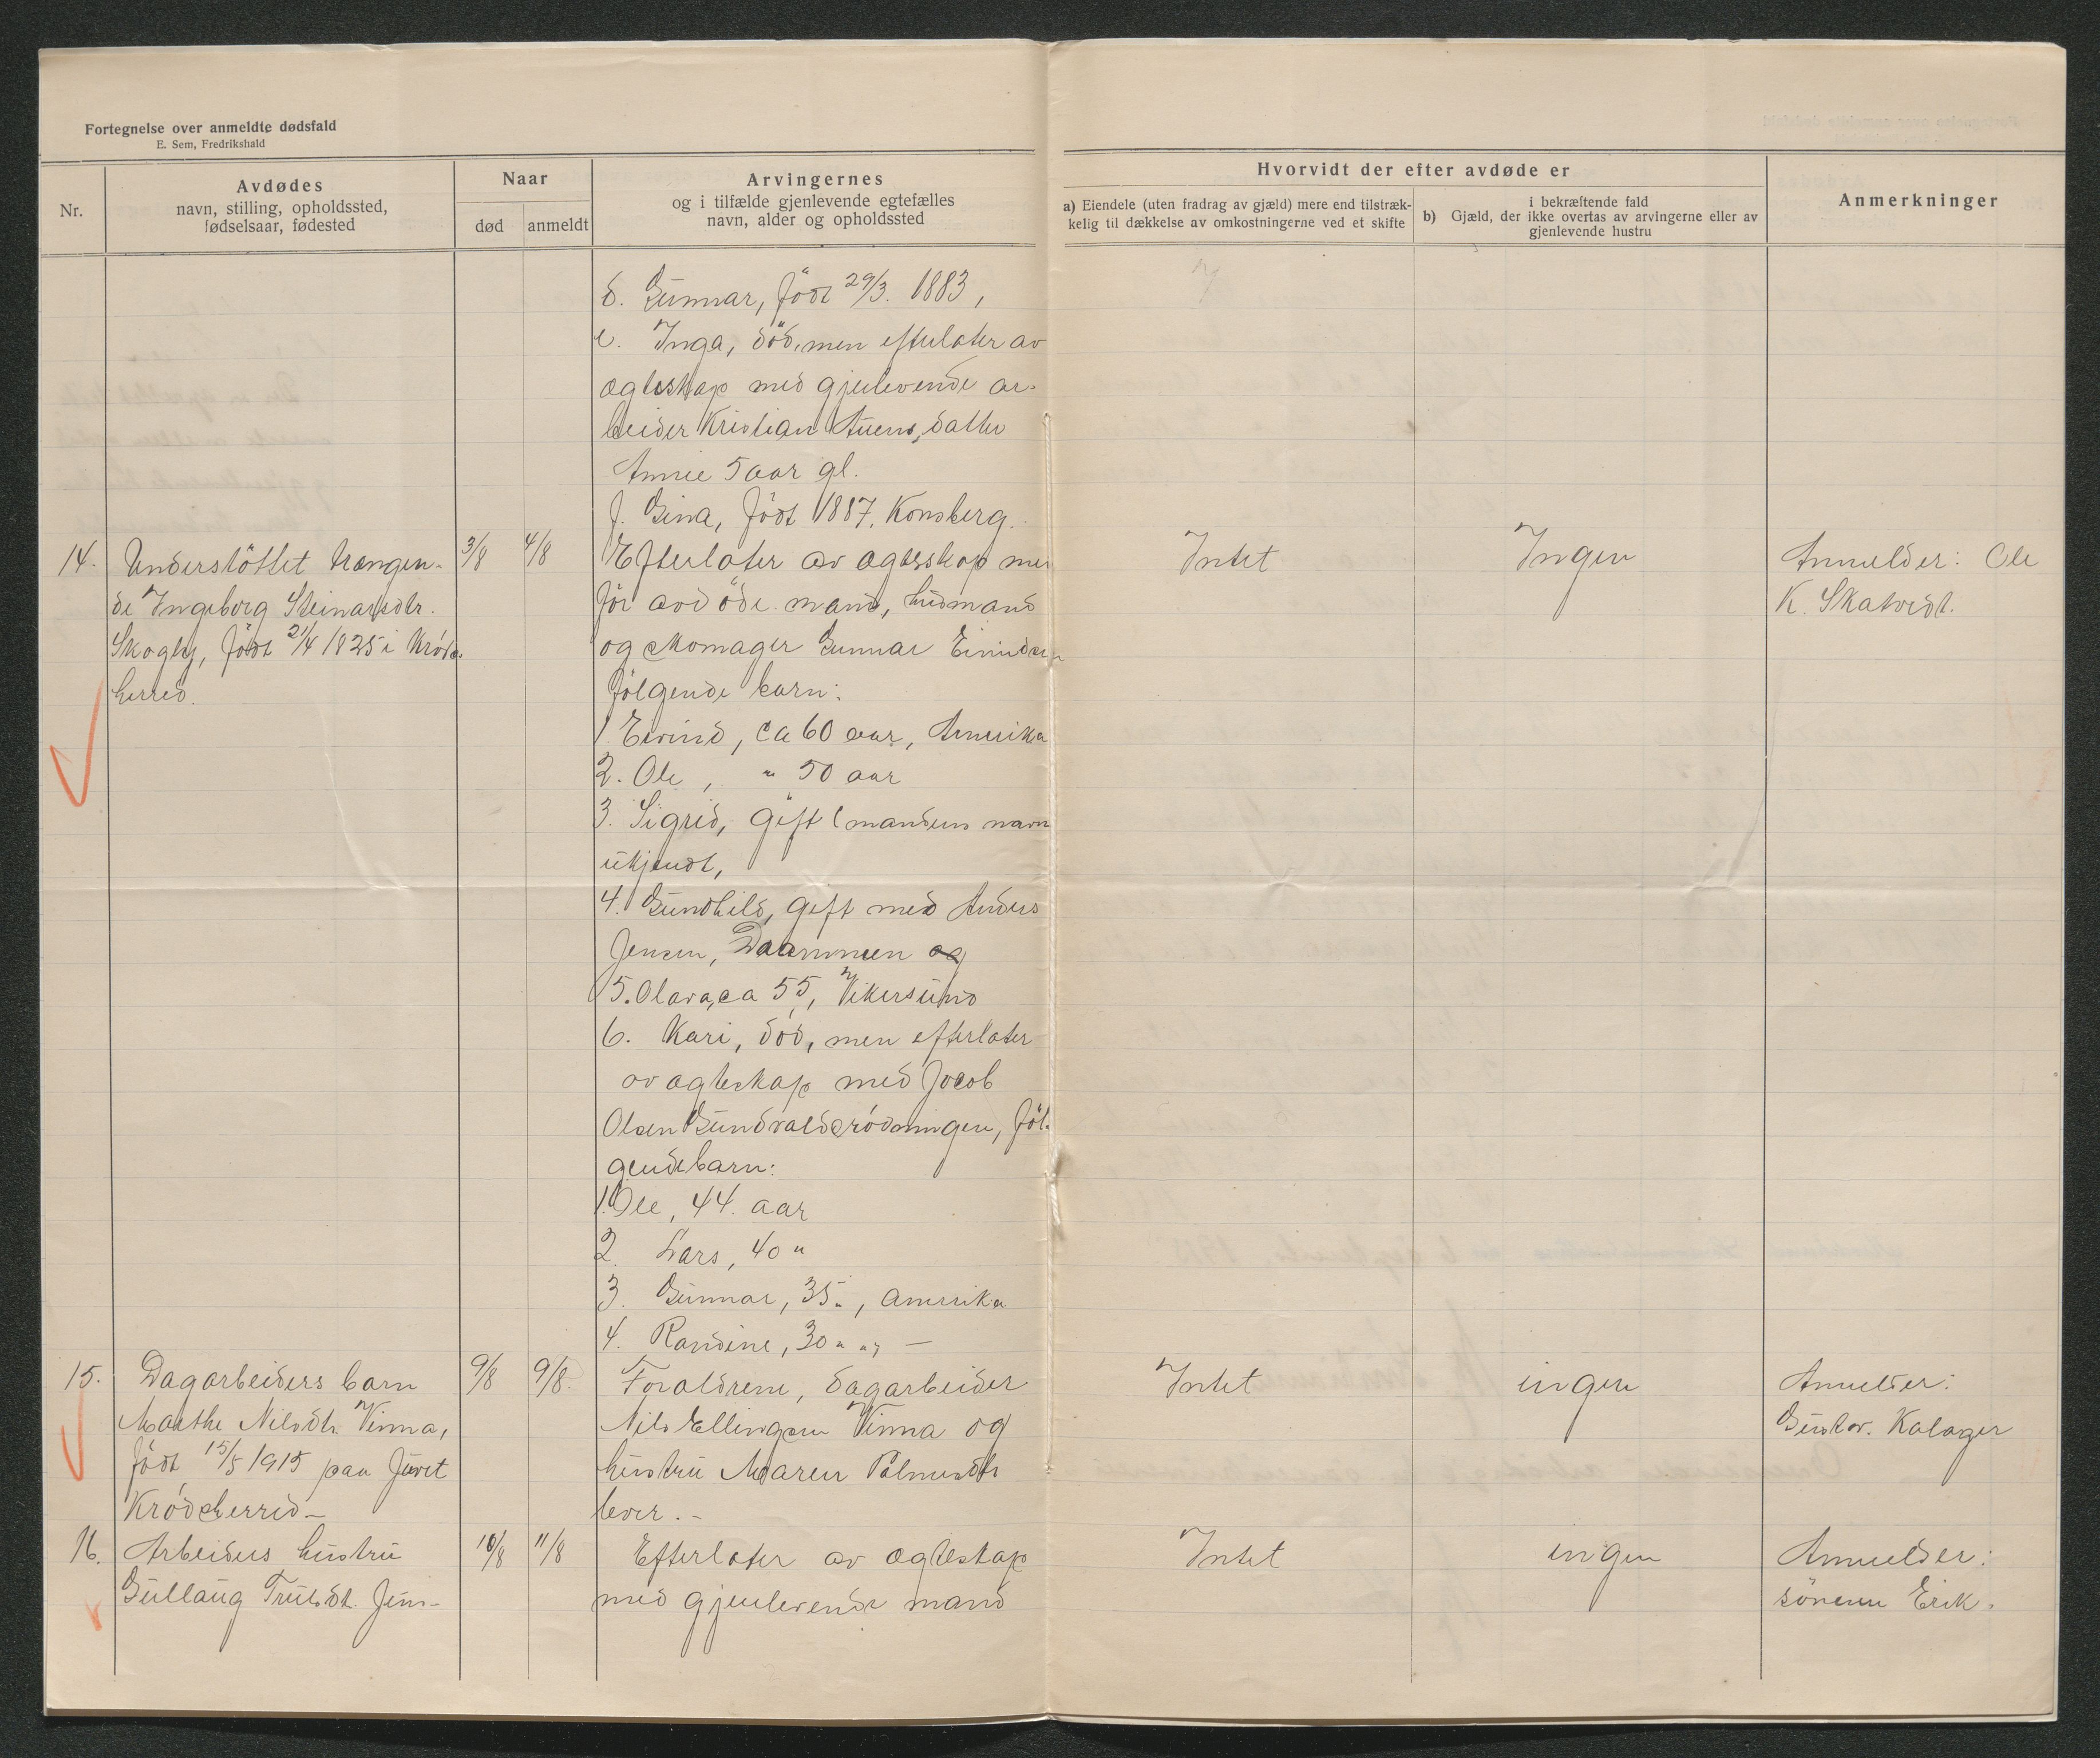 Fortegnelse over anmeldte dødsfald
E. Sem, Fredrikshald
Nr.
Avdødes
navn, stilling, opholdssted,
fødselsaar, fødested
Naar
død
anmeldt
Arvingernes
og i tilfælde gjenlevende egtefælles
navn, alder og opholdssted
Hvorvidt der efter avdøde er
a) Eiendele (uten fradrag av gjæld) mere end tilstræk-
kelig til dækkelse av omkostningerne ved et skifte
i bekræftende fald
b) Gjæld, der ikke overtas av arvingerne eller av
gjenlevende hustru
Anmerkninger
d. Gunnar, født 29/3. 1883,
e. Inga, död, men efterlater av
ægteskap med gjenlevende ar-
beider Kristian datter
Annie 5 aar gl.
f. Gina, födt 1887, Konsberg.
14. Understöttet trængen-
de Ingeborg Steinarsdtr.
Skogly, födt 21/4 1825 i Kröds-
herred.
3/8
4/8
Efterlater av ægteskap med
för avdöde mand, husmand
og skomager Gunnar
fölgende barn:
1. Eivind, ca 60 aar, Amerika
2. Ole, " 50 aar
3. Sigrid, gift (mandens navn
ukjendt,
4. Gundhild, gift med Anders
Jensen, Drammen og
5. Olava, ca 55, Vikersund
6. Kari, död, men efterlater
av ægteskap med Jocob
Olsen Gundvaldsrödningen, föl-
gende barn:
1. Ole, 44. aar
2. Lars, 40 "
3. Gunnar, 35 ", Amerika
4. Randine, 30 " " —
Intet
Ingen
Anmelder: Ole
K. Skatvedt.
15. Dagarbeiders barn
Marthe Nilsdtr. Vinna,
födt 15/5 1915 paa Juvet
Krödsherred —
9/8
9/8.
Forældrene, dagarbeider
Nils Ellingsen Vinna og
hustru Maren Palmesdtr
lever. -
Intet
ingen
Anmelder:
Gustav. Kalager
16. Arbeiders hustru
Gullaug Trulsdtr. Jens-
10/8
11/8
Efterlater av ægteskap
med gjenlevende mand
Intet
ingen
Anmelder:
sönnen Erik.